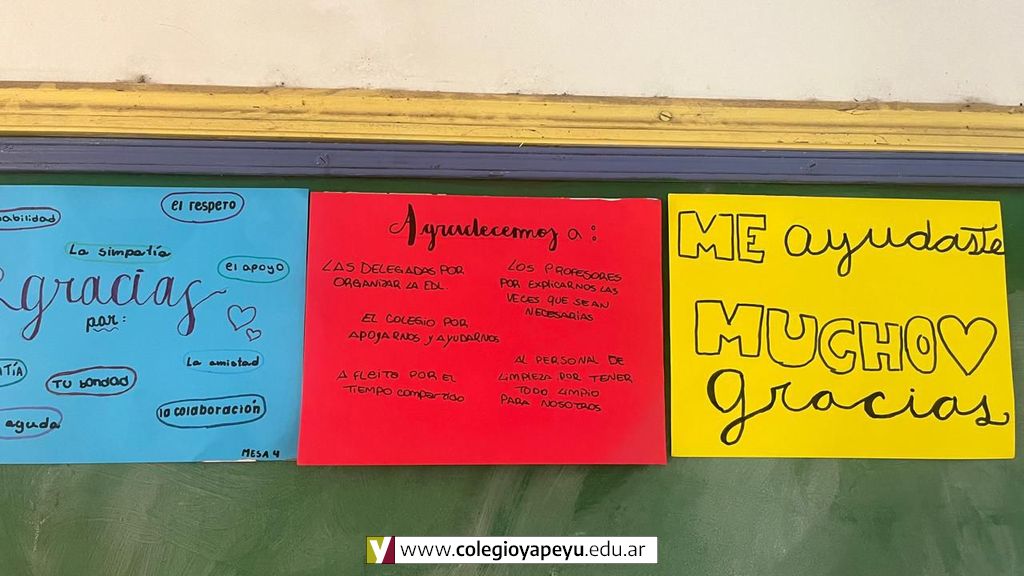 el respero
La simpatía
el apoyo
gracias
por:
La amistad
TU bondad
la colaboración
ayuda
MESA 4
Agradecemos a:
LAS DELEGADAS POR
ORGANIZAR LA EDL.
EL COLEGIO POR
APOYARNOS Y AYUDARNOS
A FLEITA POR EL
TIEMPO compartido
LOS PROFESORES
POR EXPLICARNOS LAS
VECES QUE SEAN
NECESARIAS
AL PERSONAL DE
LIMPIEZA POR TENER
TODO LIMPIO
PARA NOSOTROS
ME ayudaste
MUCHO
gracias
www.colegioyapeyu.edu.ar